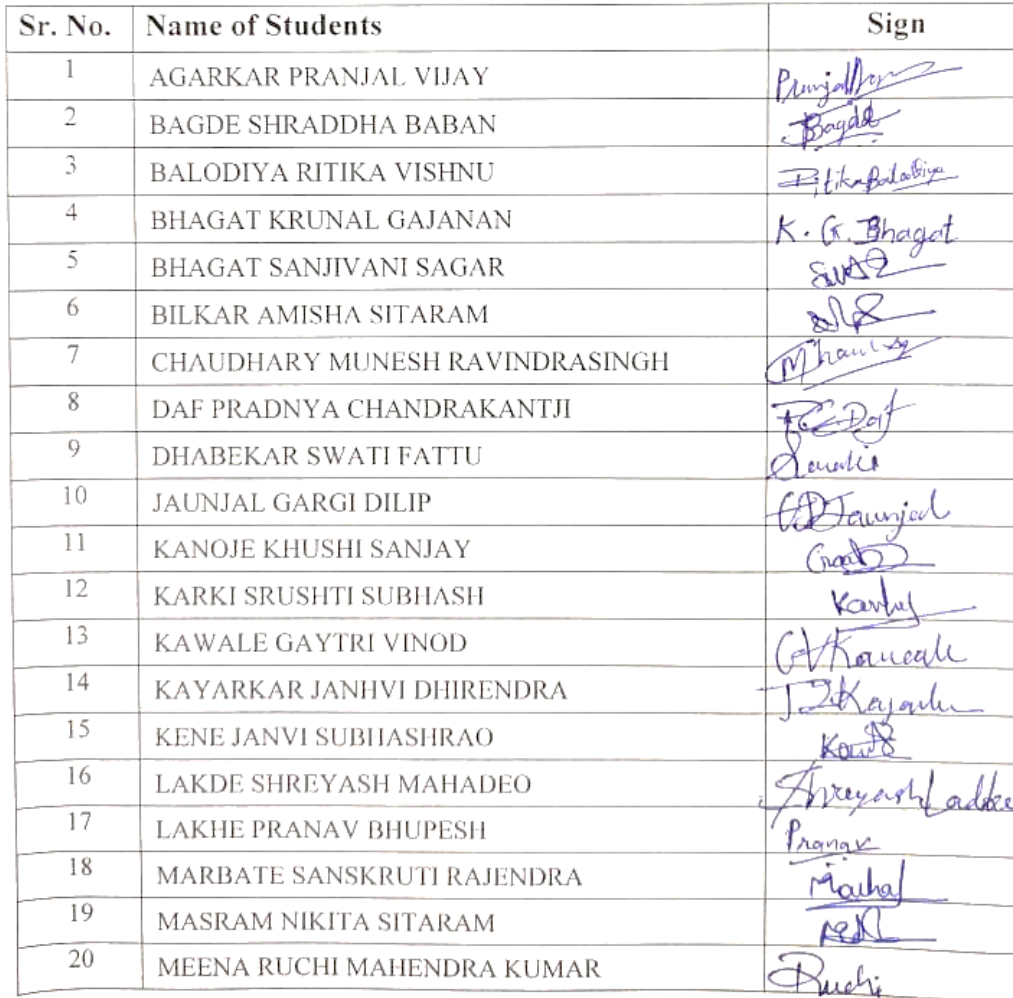 Sr. No. Name of Students Sign
1 AGARKAR PRANJAL VIJAY
2 BAGDE SHRADDHA BABAN Bagde
3 BALODIYA RITIKA VISHNU Ritika Balodiya
4 BHAGAT KRUNAL GAJANAN K. G. Bhagat
5 BHAGAT SANJIVANI SAGAR
6 BILKAR AMISHA SITARAM
7 CHAUDHARY MUNESH RAVINDRASINGH
8 DAF PRADNYA CHANDRAKANTJI PC Daf
9 DHABEKAR SWATI FATTU
10 JAUNJAL GARGI DILIP GDJaunjal
11 KANOJE KHUSHI SANJAY
12 KARKI SRUSHTI SUBHASH
13 KAWALE GAYTRI VINOD GVKawale
14 KAYARKAR JANHVI DHIRENDRA
15 KENE JANVI SUBHASHRAO
16 LAKDE SHREYASH MAHADEO Shreyash
17 LAKHE PRANAV BHUPESH Pranav
18 MARBATE SANSKRUTI RAJENDRA
19 MASRAM NIKITA SITARAM
20 MEENA RUCHI MAHENDRA KUMAR Ruchi